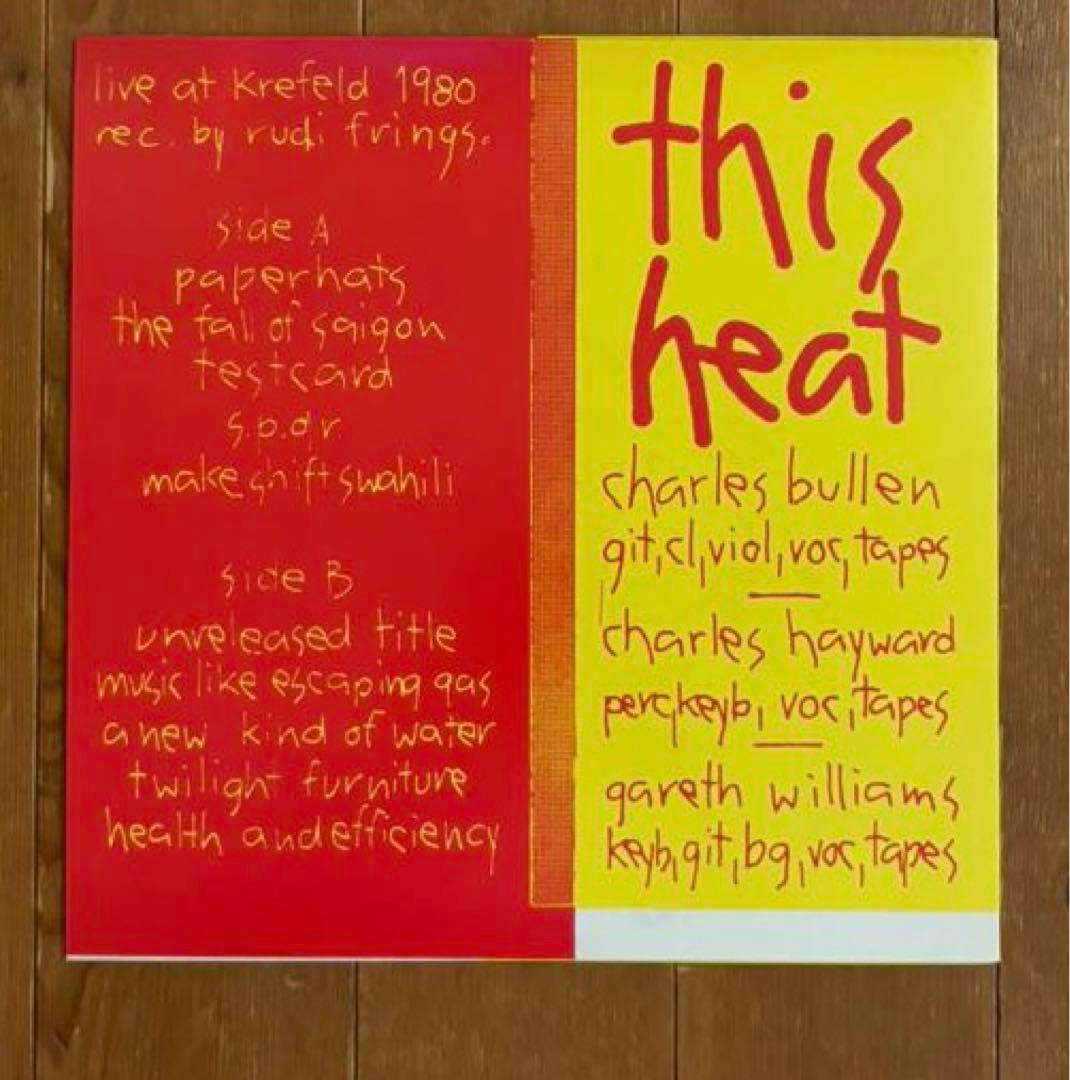 live at Krefeld 1980
rec. by rudi frings.
side A
paperhats
the fall of saigon
testcard
s.p.q.r.
makeshift swahili
side B
unreleased title
music like escaping gas
a new kind of water
twilight furniture
health and efficiency
this
heat
charles bullen
git, cl, viol, voc, tapes
charles hayward
perc, keyb, voc, tapes
gareth williams
keyb, git, bg, voc, tapes